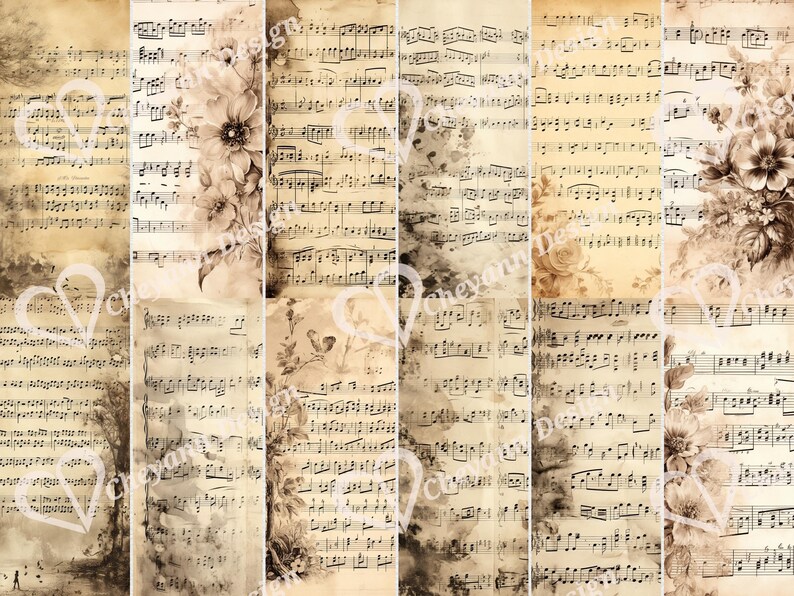 Cheyann Design
Cheyann Design
Cheyann Design
Cheyann Design
Cheyann Design